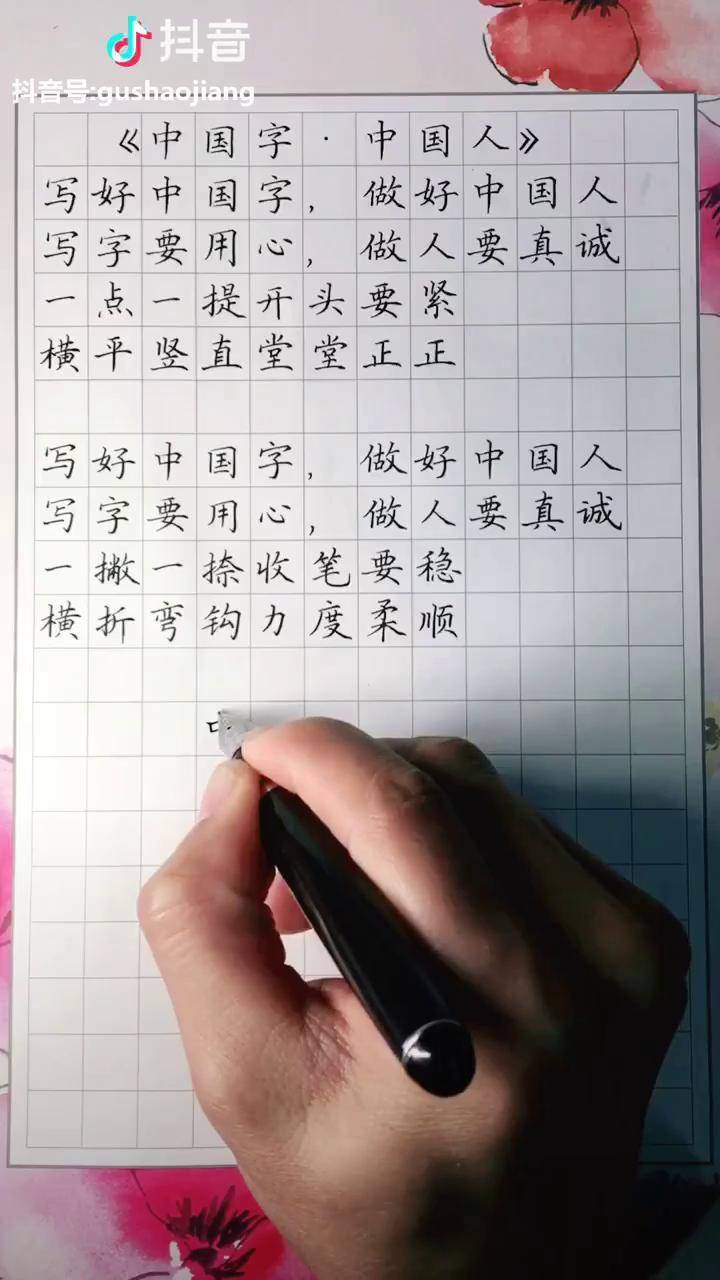 抖音
抖音号:gushaojiang
《中国字·中国人》
写好中国字，做好中国人
写字要用心，做人要真诚
一点一提开头要紧
横平竖直堂堂正正
写好中国字，做好中国人
写字要用心，做人要真诚
一撇一捺收笔要稳
横折弯钩力度柔顺